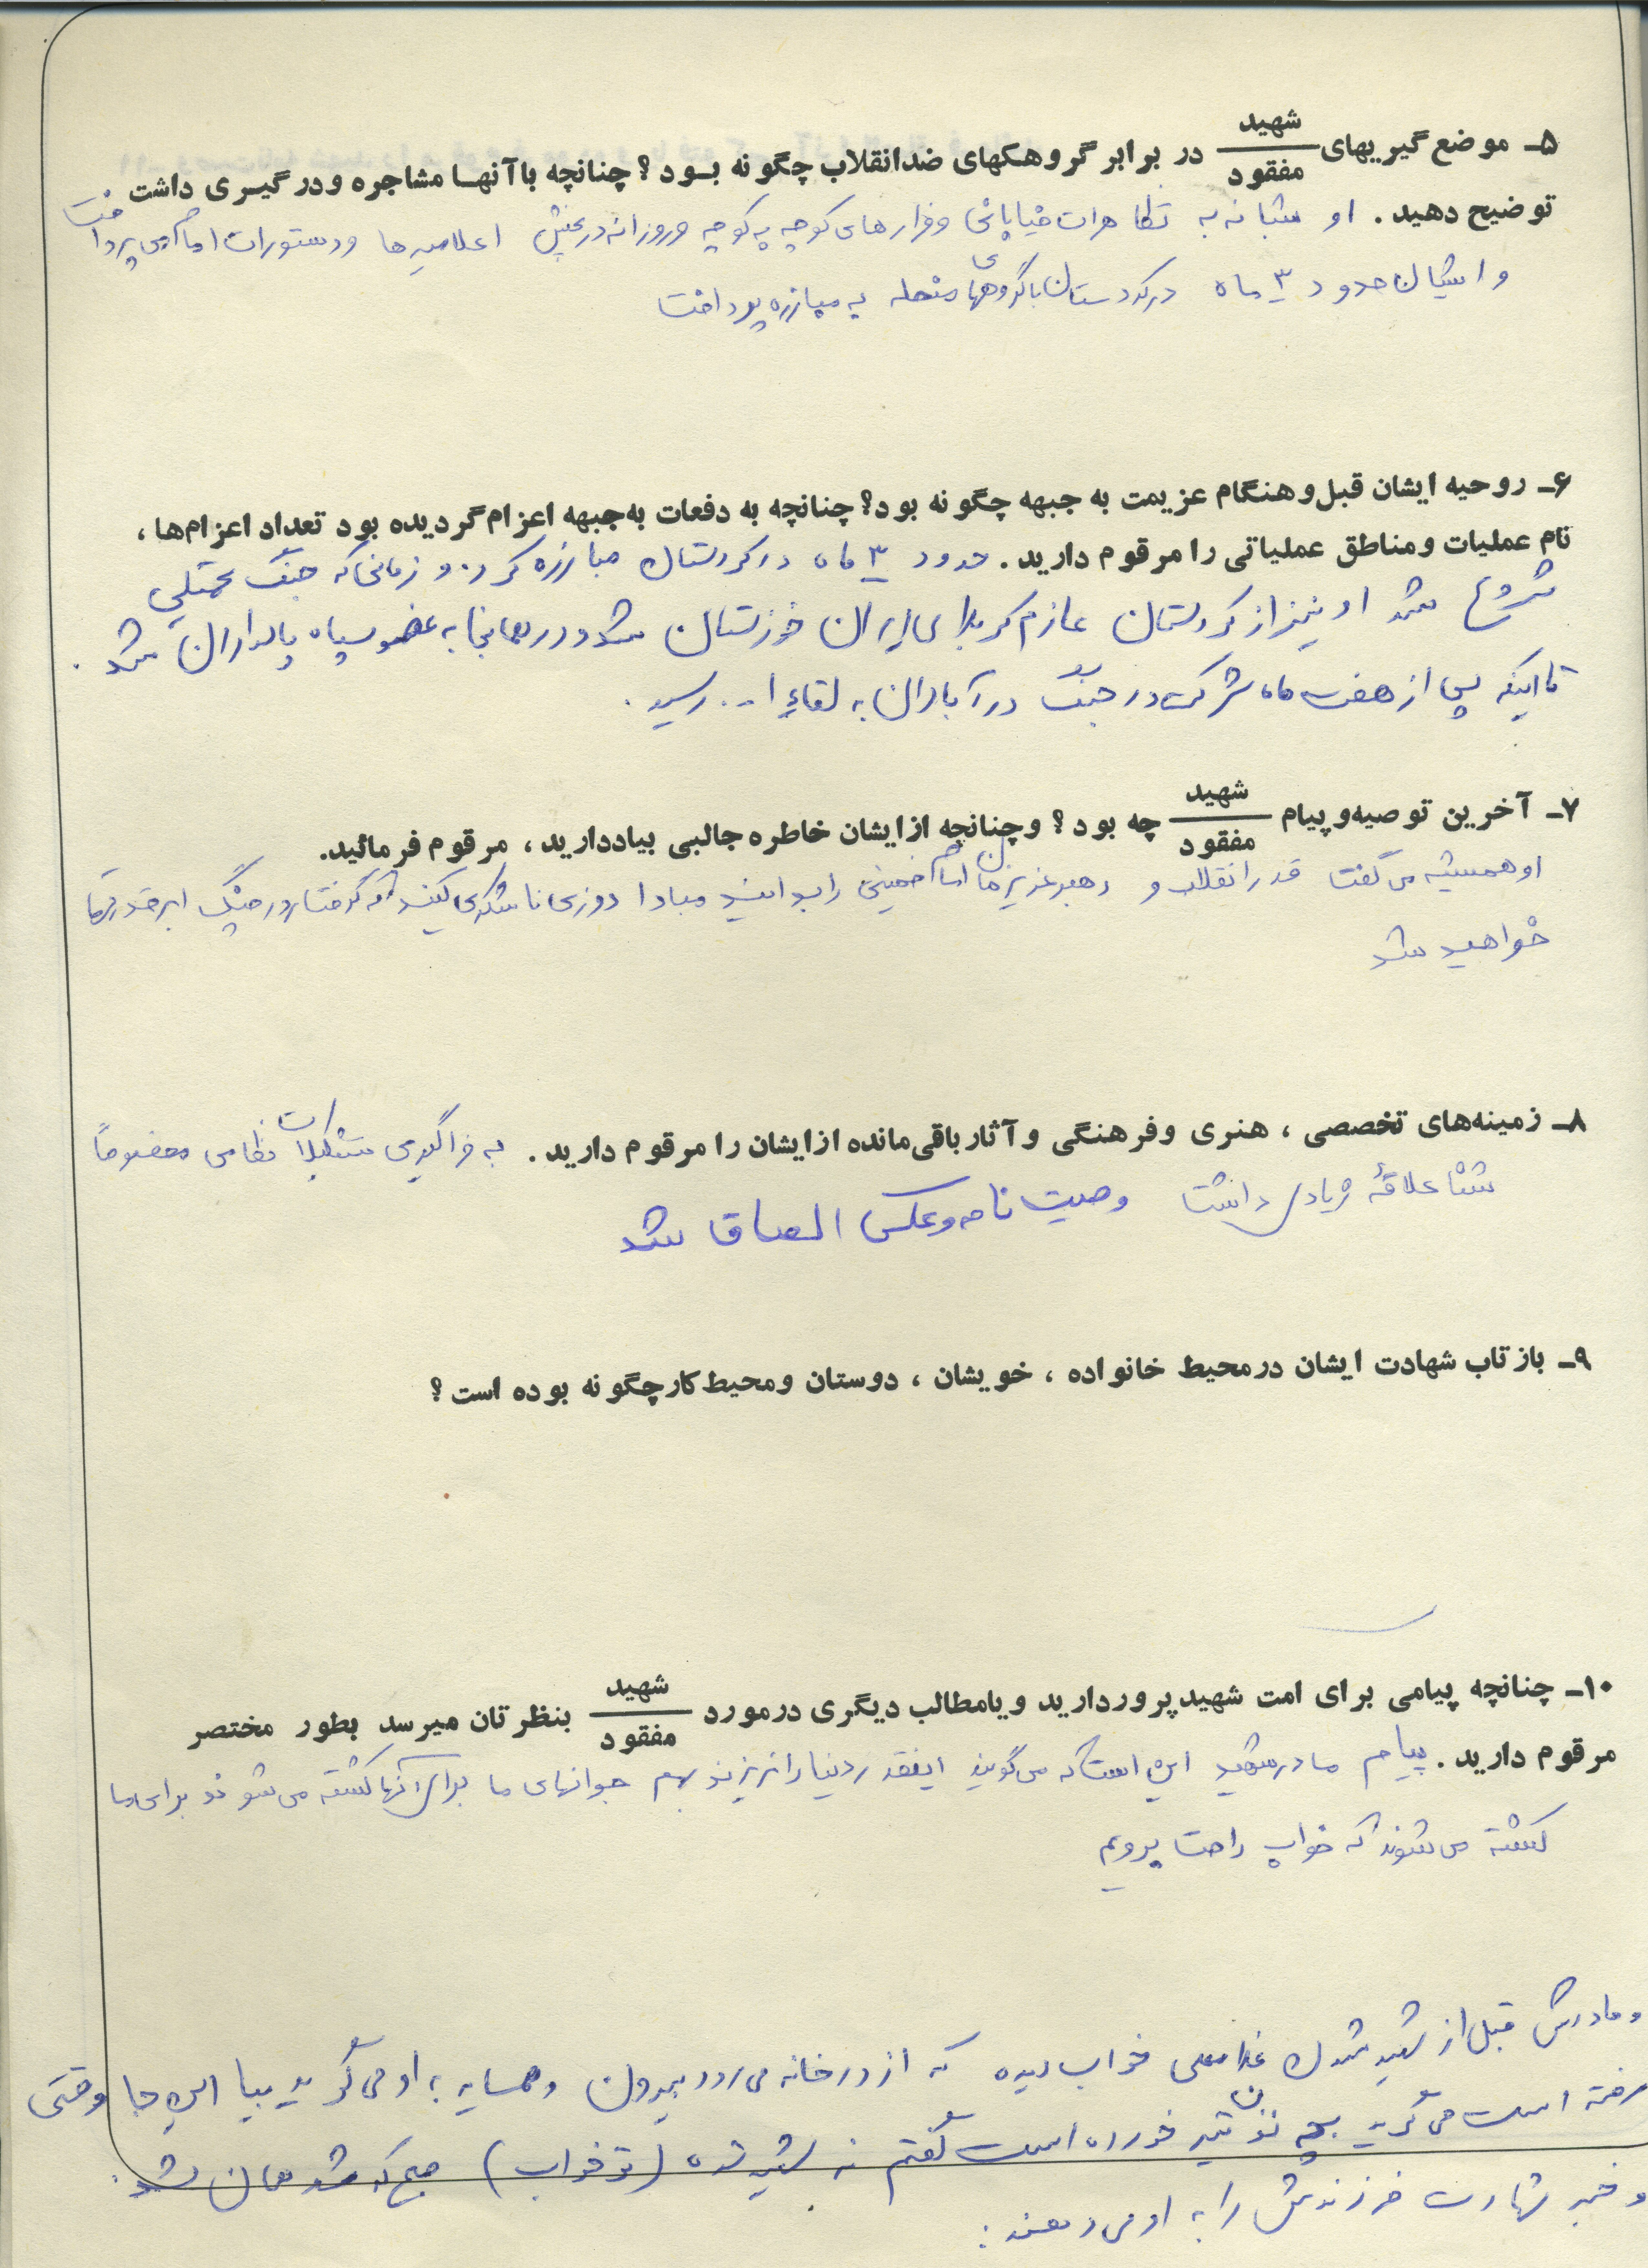 ۵ـ موضع گیریهای شهید / مفقود در برابر گروهکهای ضدانقلاب چگونه بود؟ چنانچه باآنها مشاجره ودرگیری داشت
توضیح دهید. او شبانه به تظاهرات خیابانی وفرارهای کوچه به کوچه وروزانه درپخش اعلامیه ها ودستورات امام می پرداخت
وایشان حدود ۳ ماه درکردستان باگروههای منحله به مبارزه پرداخت
۶ـ روحیه ایشان قبل وهنگام عزیمت به جبهه چگونه بود؟ چنانچه به دفعات به جبهه اعزام گردیده بود تعداد اعزام‌ها،
نام عملیات ومناطق عملیاتی را مرقوم دارید. حدود ۳ ماه درکردستان مبارزه کرد. و زمانی که جنگ تحمیلی
شروع شد او نیز از کردستان عازم کربلای ایران خوزستان شد ودر همانجا به عضو سپاه پاسداران شد.
تا اینکه پس از هفت ماه شرکت در جنگ در آبادان به لقاء ا... رسید.
۷ـ آخرین توصیه وپیام شهید / مفقود چه بود؟ وچنانچه ازایشان خاطره جالبی بیاددارید، مرقوم فرمائید.
او همیشه می گفت قدر انقلاب و رهبر عزیزمان امام خمینی را بدانید مبادا روزی ناشکری کنید که گرفتار درچنگ ابرقدرتها
خواهید شد
۸ـ زمینه‌های تخصصی، هنری وفرهنگی وآثار باقی‌مانده ازایشان را مرقوم دارید. به فراگیری تشکیلات نظامی مخصوصاً
شنا علاقهٔ زیادی داشت وصیت نامه وعکس الصاق شد
۹ـ بازتاب شهادت ایشان درمحیط خانواده، خویشان، دوستان ومحیط کار چگونه بوده است؟
۱۰ـ چنانچه پیامی برای امت شهیدپرور دارید ویامطالب دیگری درمورد شهید / مفقود بنظرتان میرسد بطور مختصر
مرقوم دارید. پیام مادرشهید این است که می گوید اینقدر دنیا را نریزید بهم جوانهای ما برای آنها کشته می شوند برای ما
کشته می شوند که خواب راحت برویم
ومادرش قبل از شهید شدن غلامعلی خواب دیده که از در خانه می رود بیرون وهمسایه به او می گوید بیا این جا وقتی
رفته است می گوید بچه تون تیر خورده است گفتم نه شهید شده (تو خواب) صبح که شد همان شد.
و خبر شهادت فرزندش را به او می دهند: